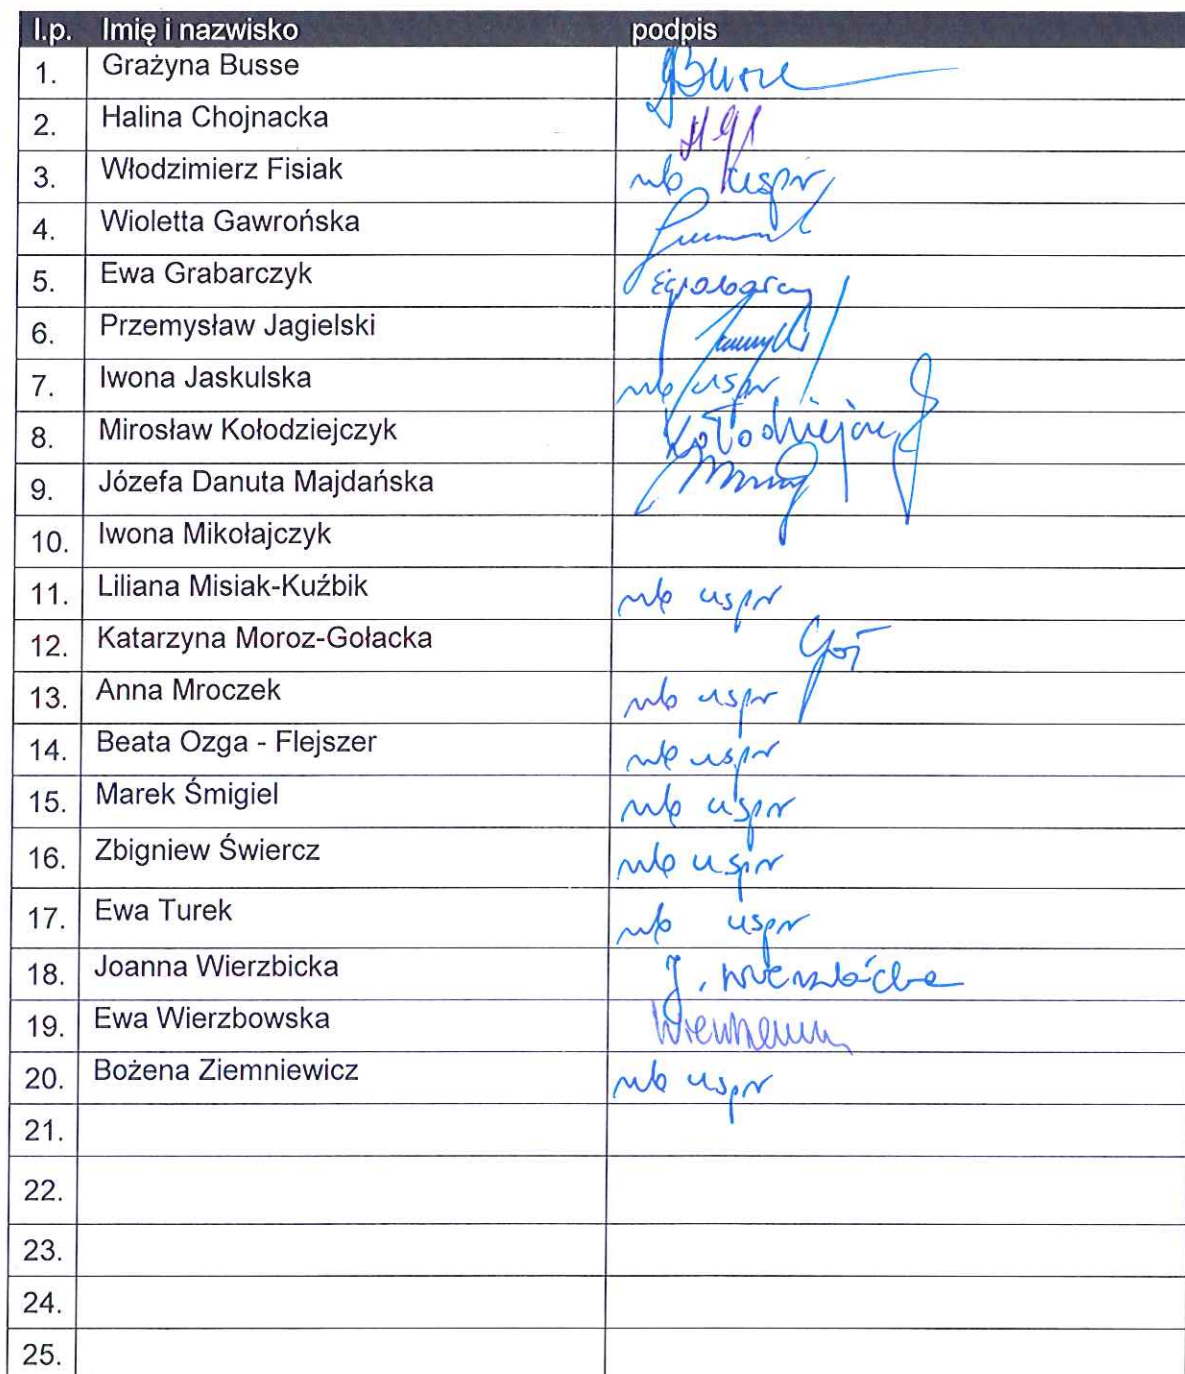 l.p. Imię i nazwisko podpis
1. Grażyna Busse Busse
2. Halina Chojnacka
3. Włodzimierz Fisiak nb uspr
4. Wioletta Gawrońska
5. Ewa Grabarczyk
6. Przemysław Jagielski
7. Iwona Jaskulska nb uspr
8. Mirosław Kołodziejczyk
9. Józefa Danuta Majdańska
10. Iwona Mikołajczyk
11. Liliana Misiak-Kuźbik nb uspr
12. Katarzyna Moroz-Gołacka
13. Anna Mroczek nb uspr
14. Beata Ozga - Flejszer nb uspr
15. Marek Śmigiel nb uspr
16. Zbigniew Świercz nb uspr
17. Ewa Turek nb uspr
18. Joanna Wierzbicka J. Wierzbicka
19. Ewa Wierzbowska
20. Bożena Ziemniewicz nb uspr
21.
22.
23.
24.
25.